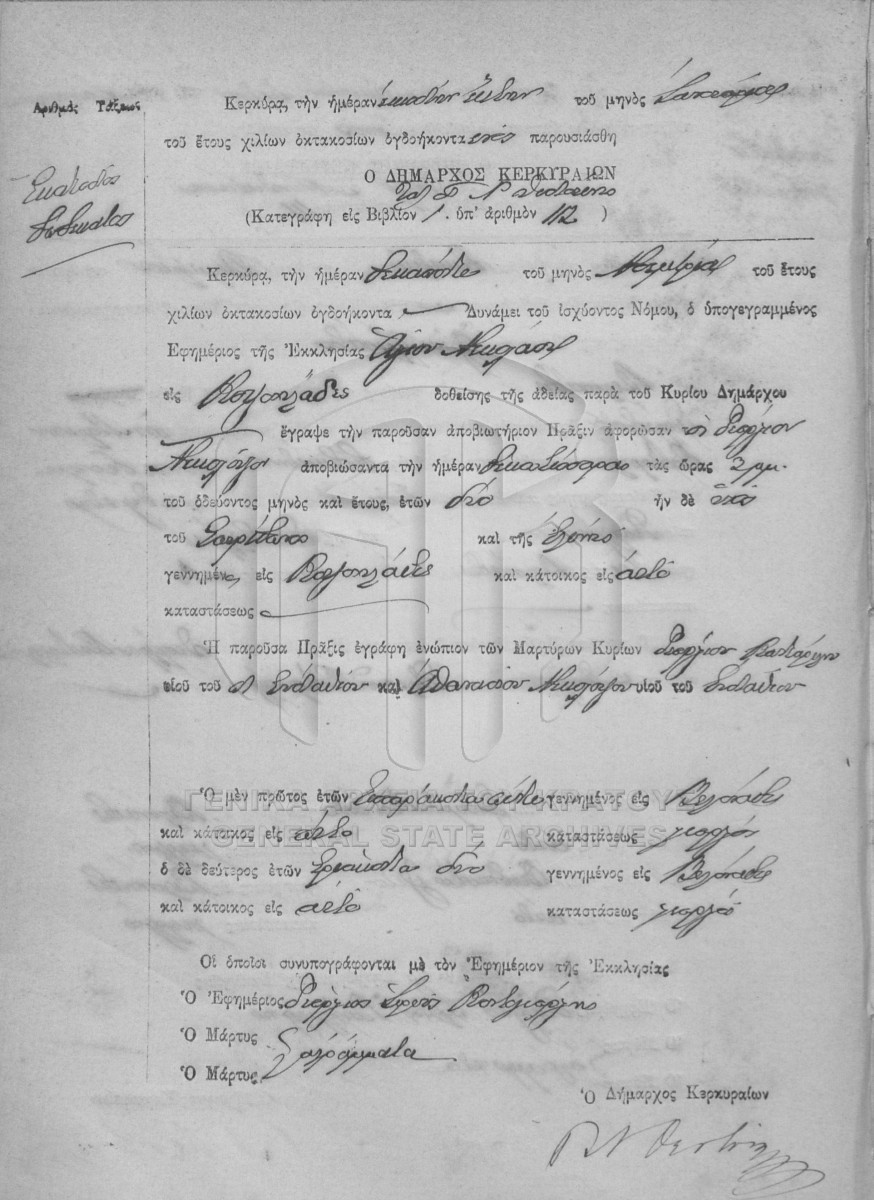 Ἀριθμὸς Τάξεως
Ἑκατοστὸς
δωδέκατος
Κερκύρα, τὴν ἡμέραν εἰκοστὴν ἕκτην τοῦ μηνὸς Ἰανουαρίου
τοῦ ἔτους χιλίων ὀκτακοσίων ὀγδοήκοντα ἑνὸς παρουσιάσθη
Ο ΔΗΜΑΡΧΟΣ ΚΕΡΚΥΡΑΙΩΝ
(Κατεγράφη εἰς Βιβλίον 1. ὑπ' ἀριθμὸν 112 )
Κερκύρα, τὴν ἡμέραν δεκαπέντε τοῦ μηνὸς Νοεμβρίου τοῦ ἔτους
χιλίων ὀκτακοσίων ὀγδοήκοντα Δυνάμει τοῦ ἰσχύοντος Νόμου, ὁ ὑπογεγραμμένος
Ἐφημέριος τῆς Ἐκκλησίας Ἁγίου Νικολάου
εἰς δοθείσης τῆς ἀδείας παρὰ τοῦ Κυρίου Δημάρχου
ἔγραψε τὴν παροῦσαν ἀποβιωτήριον Πρᾶξιν ἀφορῶσαν τὸν Γεώργιον
ἀποβιώσαντα τὴν ἡμέραν δεκατέσσαρας τὰς ὥρας 2 μμ.
τοῦ ὁδεύοντος μηνὸς καὶ ἔτους, ἐτῶν δύο ἦν δὲ υἱὸς
τοῦ Σπυρίδωνος καὶ τῆς Ἑλένης
γεννημένος εἰς καὶ κάτοικος εἰς αὐτὸ
καταστάσεως
Ἡ παροῦσα Πρᾶξις ἐγράφη ἐνώπιον τῶν Μαρτύρων Κυρίων Γεωργίου
υἱοῦ τοῦ καὶ Ἀθανασίου υἱοῦ τοῦ
Ὁ μὲν πρῶτος ἐτῶν σαράκοντα πέντε γεννημένος εἰς
ΓΕΝΙΚΑ ΑΡΧΕΙΑ ΤΟΥ ΚΡΑΤΟΥΣ
καὶ κάτοικος εἰς αὐτὸ καταστάσεως γεωργὸς
GENERAL STATE ARCHIVES
ὁ δὲ δεύτερος ἐτῶν τριάκοντα δύο γεννημένος εἰς
καὶ κάτοικος εἰς αὐτὸ καταστάσεως γεωργὸς
Οἱ ὁποῖοι συνυπογράφονται μὲ τὸν Ἐφημέριον τῆς Ἐκκλησίας
Ὁ Ἐφημέριος Γεώργιος Ἱερεὺς
Ὁ Μάρτυς
ἀγράμματοι
Ὁ Μάρτυς
Ὁ Δήμαρχος Κερκυραίων